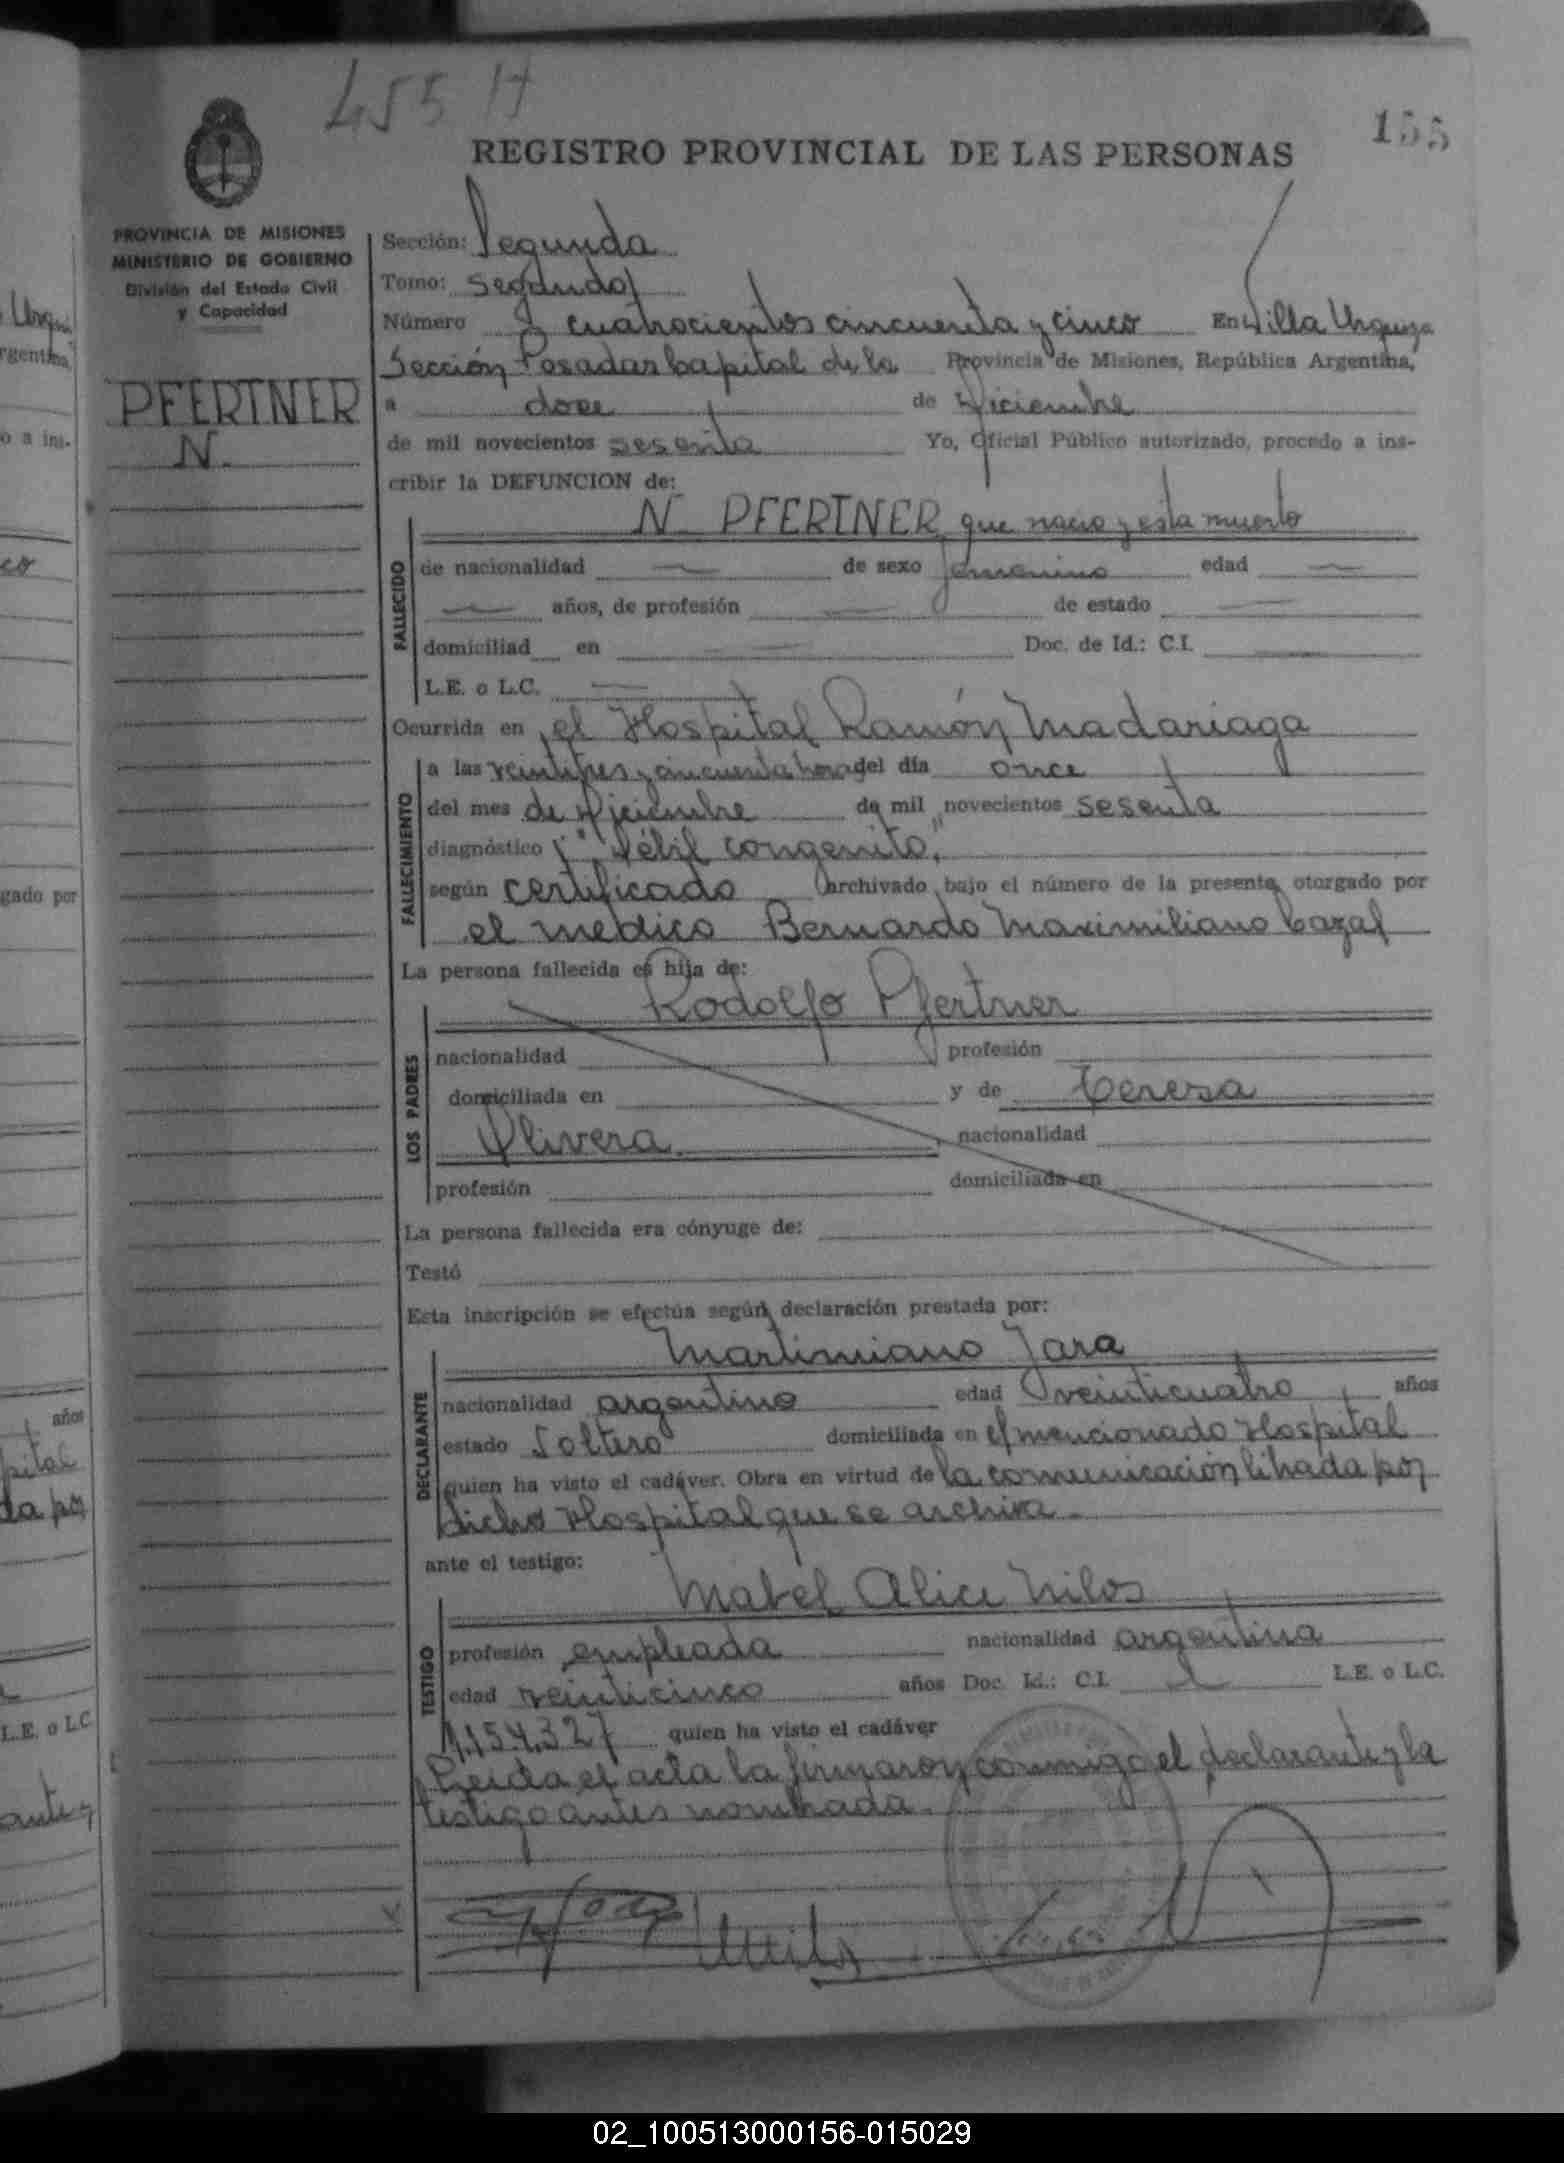 455 H
155
REGISTRO PROVINCIAL DE LAS PERSONAS
PROVINCIA DE MISIONES
MINISTERIO DE GOBIERNO
División del Estado Civil
y Capacidad
PFERTNER
N.
Sección: Segunda
Tomo: Segundo
Número cuatrocientos cincuenta y cinco En Villa Urquiza
Sección Posadas Capital de la Provincia de Misiones, República Argentina,
a doce de Diciembre
de mil novecientos sesenta Yo, Oficial Público autorizado, procedo a ins-
cribir la DEFUNCION de:
N PFERTNER que nacio y esta muerto
FALLECIDO
de nacionalidad — de sexo femenino edad —
— años, de profesión — de estado —
domiciliad en — Doc. de Id.: C.I. —
L.E. o L.C. —
Ocurrida en el Hospital Ramón Madariaga
FALLECIMIENTO
a las veintitres y cincuenta horas del día once
del mes de Diciembre de mil novecientos sesenta
diagnóstico "Débil congenito"
según certificado archivado bajo el número de la presente, otorgado por
el medico Bernardo Maximiliano Cazal
La persona fallecida es hija de:
Rodolfo Pfertner
LOS PADRES
nacionalidad profesión
domiciliada en y de Teresa
Olivera. nacionalidad
profesión domiciliada en
La persona fallecida era cónyuge de:
Testó
Esta inscripción se efectúa según declaración prestada por:
Martimiano Jara
DECLARANTE
nacionalidad argentino edad veinticuatro años
estado Soltero domiciliada en el mencionado Hospital
quien ha visto el cadáver. Obra en virtud de la comunicación librada por
dicho Hospital que se archiva.
ante el testigo:
Mabel Alice Milos
TESTIGO
profesión empleada nacionalidad argentina
edad veinticinco años Doc. Id.: C.I. L.E. o L.C.
1.154.327 quien ha visto el cadáver
Leida el acta la firmaron conmigo el declarante y la
testigo antes nombrada.
02_100513000156-015029